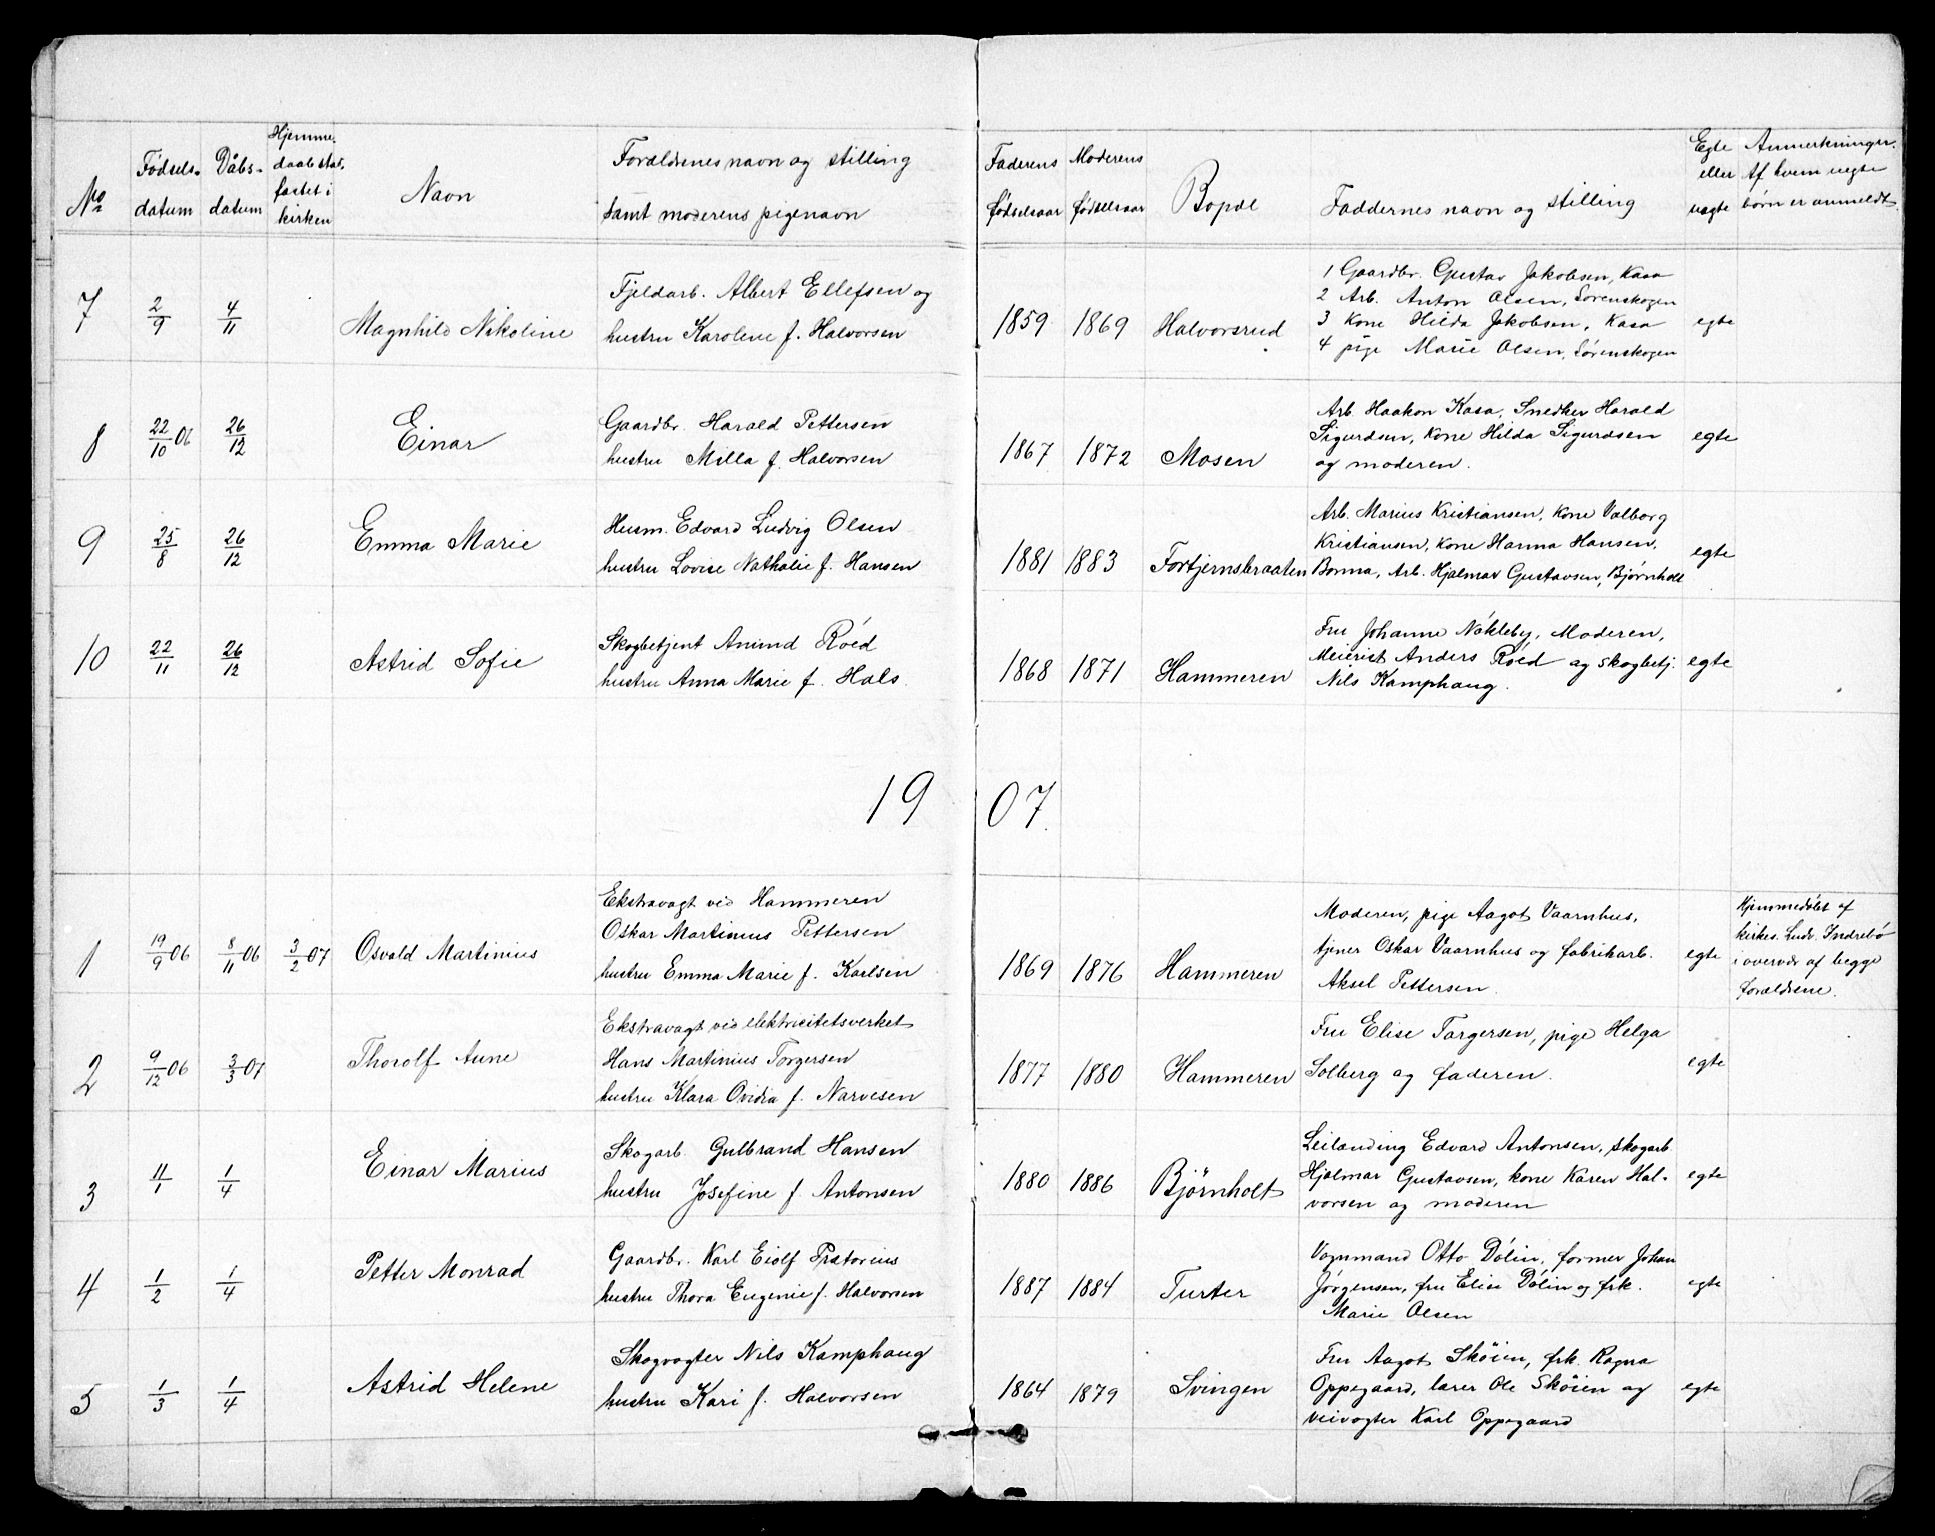 No Fødsels-datum Dåbs-datum Hjemme-daab stad-fæstet i kirken Navn Forældrenes navn og stilling samt moderens pigenavn Faderens fødselsaar Moderens fødselsaar Bopæl Faddernes navn og stilling Egte eller uægte Anmerkninger. Af hvem uegte børn er anmeldt.
7 2/9 4/11 Magnhild Nikoline
Fjeldarb. Albert Ellefsen og
hustru Karolene f. Halvorsen
1859 1869 Halvorsrud
1 Gaardbr. Gustav Jakobsen, Kasa
2 Arb. Anton Olsen, Sørenskogen
3 Kone Hilda Jakobsen, Kasa
4 pige Marie Olsen, Sørenskogen
egte
8 22/10 06 26/12 Einar
Gaardbr. Harald Pettersen
hustru Milla f. Halvorsen
1867 1872 Mosen
Arb. Haakon Kasa, Snedker Harald
Sigurdsen, Kone Hilda Sigurdsen
og moderen.
egte
9 25/8 26/12 Emma Marie
Husm. Edvard Ludvig Olsen
hustru Lovise Nathalie f. Hansen
1881 1883 Fortjernsbraaten
Arb. Marius Kristiansen, Kone Valborg
Kristiansen, Kone Hanna Hansen,
Bonna, Arb. Hjalmar Gustavsen, Bjørnholt
egte
10 22/11 26/12 Astrid Sofie
Skogbetjent Anund Röed
hustru Anna Marie f. Hals.
1868 1871 Hammeren
Fru Johanne Nökleby, Moderen,
Meierist Anders Röed og skogbetj.
Nils Kamphaug.
egte
1907.
1 19/9 06 8/11 06 3/2 07 Osvald Martinius
Ekstravagt ved Hammeren
Oskar Martinius Pettersen
hustru Emma Marie f. Karlsen
1869 1876 Hammeren
Moderen, pige Aagot Vaarnhus,
tjener Oskar Vaarnhus og fabrikarb.
Aksel Pettersen.
egte
Hjemmedøbt af
kirkes. Ludv. Indrebö
i overvær af begge
forældrene.
2 9/12 06 3/3 07 Thorolf Aune
Ekstravagt ved elektricitetsverket
Hans Martinius Torgersen
hustru Klara Ovidia f. Narvesen
1877 1880 Hammeren
Fru Elise Torgersen, pige Helga
Solberg og faderen.
egte
3 11/1 1/4 Einar Marius
Skogarb. Gulbrand Hansen
hustru Josefine f. Antonsen
1880 1886 Bjørnholt
Leilending Edvard Antonsen, skogarb.
Hjalmar Gustavsen, kone Karen Hal-
vorsen og moderen
egte
4 1/2 1/4 Petter Monrad
Gaardbr. Karl Eiolf Prætorius
hustru Thora Eugenie f. Halvorsen
1887 1884 Turter
Vognmand Otto Dölin, former Johan
Jörgensen, fru Elise Dölin og frk.
Marie Olsen
egte
5 1/3 1/4 Astrid Helene
Skogvogter Nils Kamphaug
hustru Kari f. Halvorsen
1864 1879 Svingen
Fru Aagot Sköien, frk. Ragna
Oppegaard, lærer Ole Sköien og
veivogter Karl Oppegaard
egte